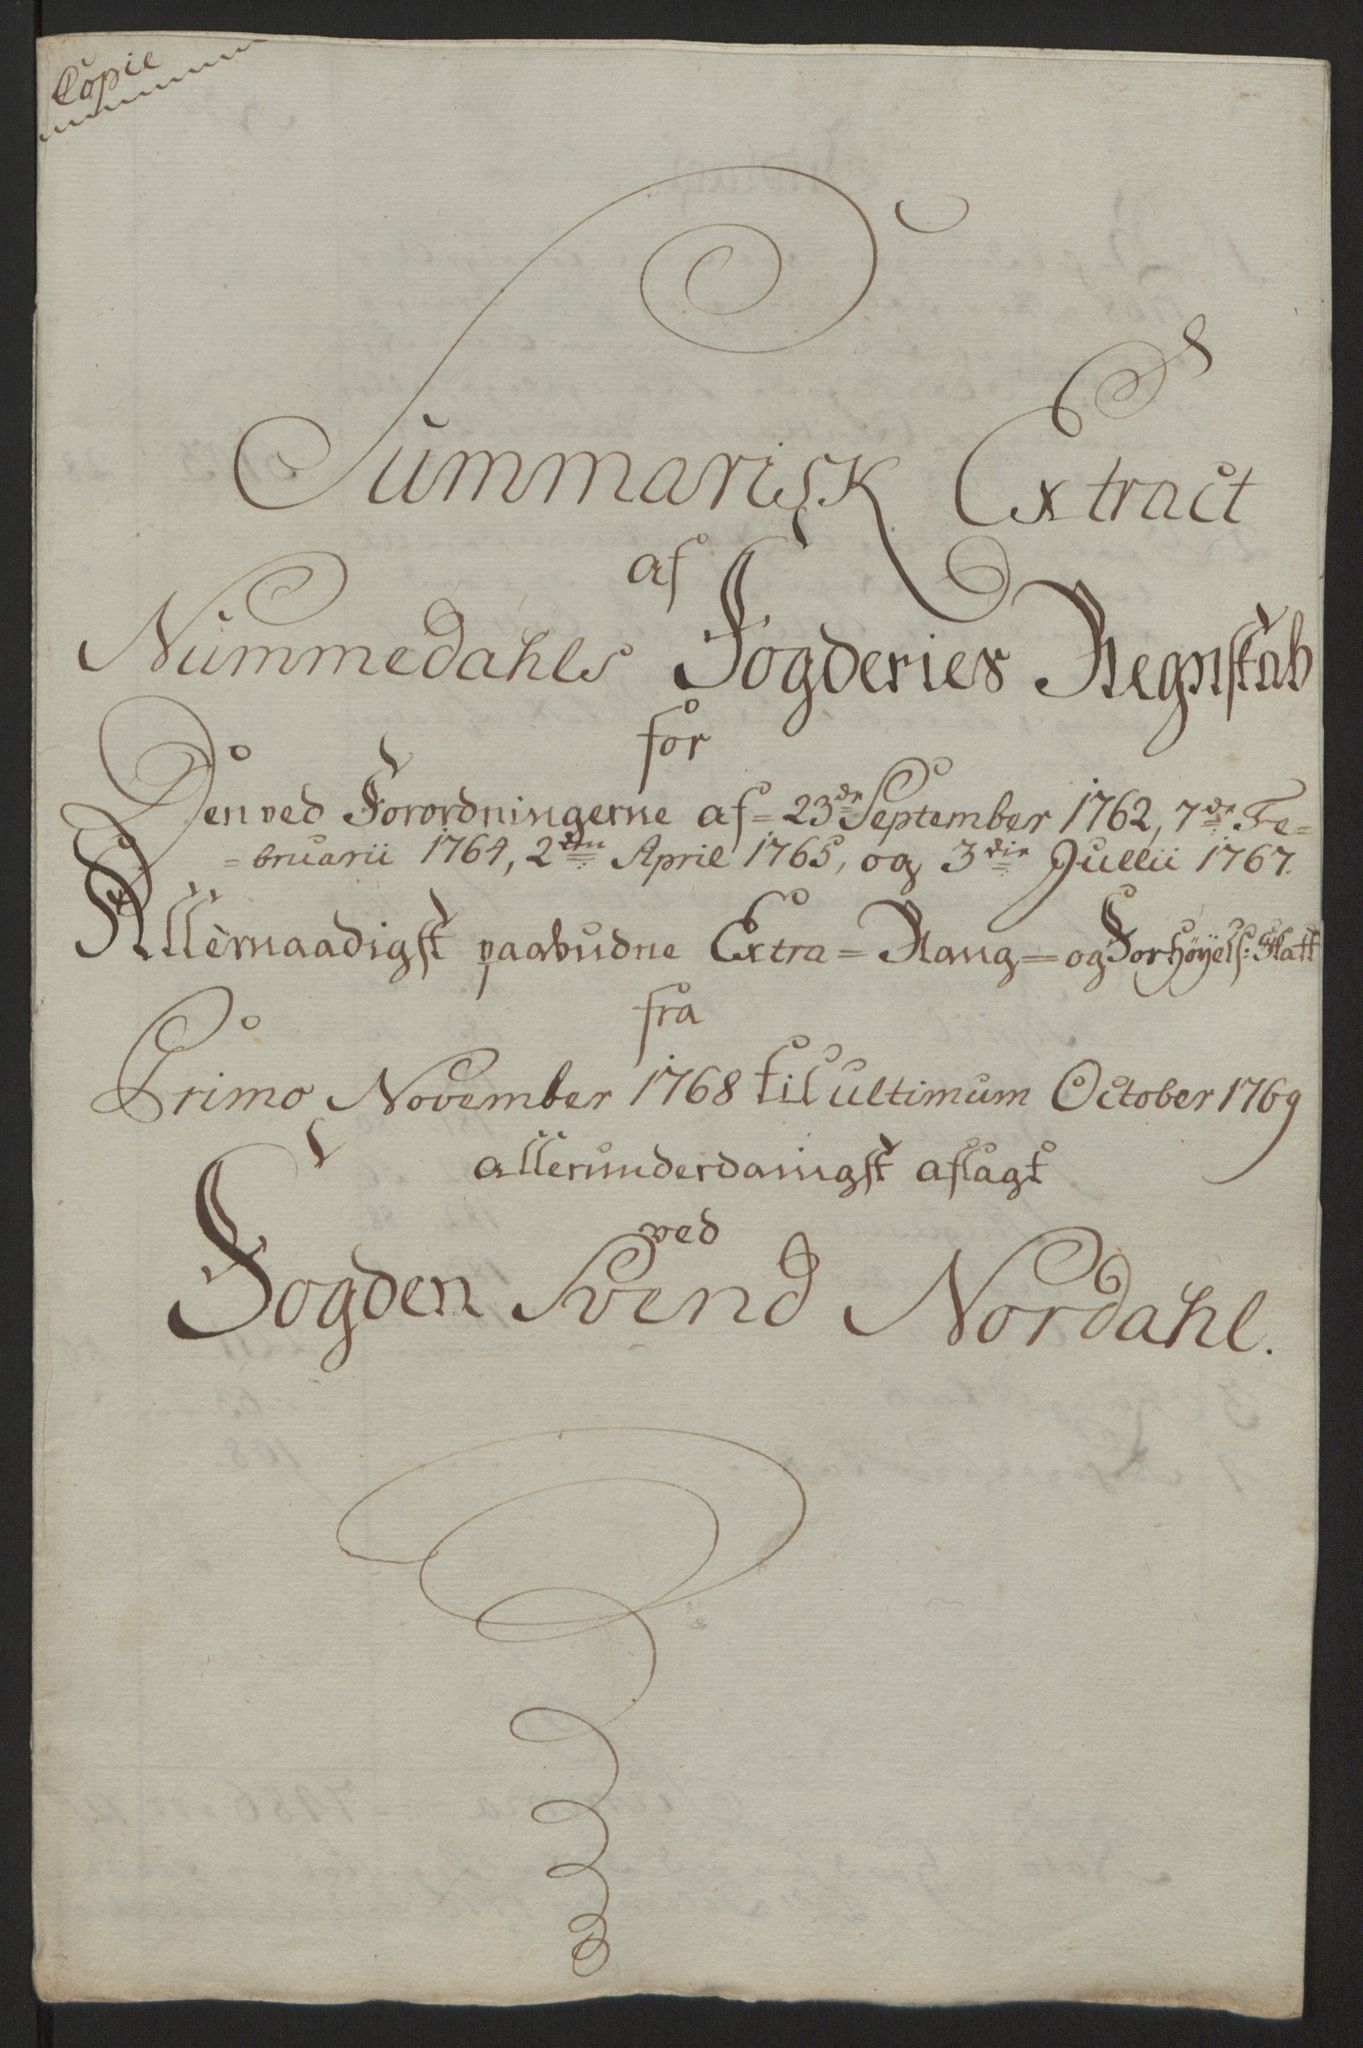 Copie
Summarisk Extract
af
Nummedahls Fogderies Regnskab
for
Den ved Forordningerne af 23de September 1762, 7de Fe=
=bruarii 1764, 2den April 1765, og 3die Jullii 1767.
Allernaadigst paabudne Extra= Rang= og Forhøyels: Skatt
fra
Primo November 1768 til ultimum October 1769
allerunderdanigst aflagt
ved
Fogden Svend Nordahl.